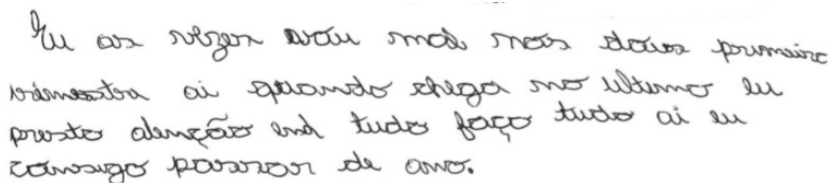 Eu as vezes vou mal nos dous primeiro
vimestra ai quando chega no ultimo eu
presto atenção em tudo faço tudo ai eu
consigo passar de ano.